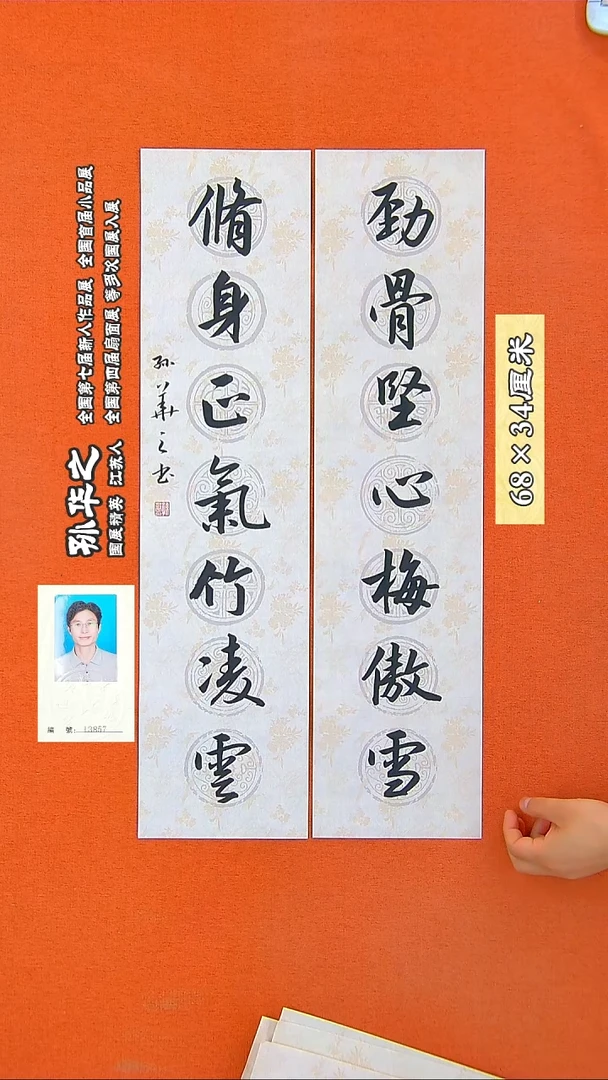 劲骨堅心梅傲雪
脩身正氣竹凌雲
孙華之书
孙华之
国展精英 江苏人
全国第七届新人作品展 全国首届小品展
全国第四届扇面展 等多次国展入展
68×34厘米
編 號: 13857